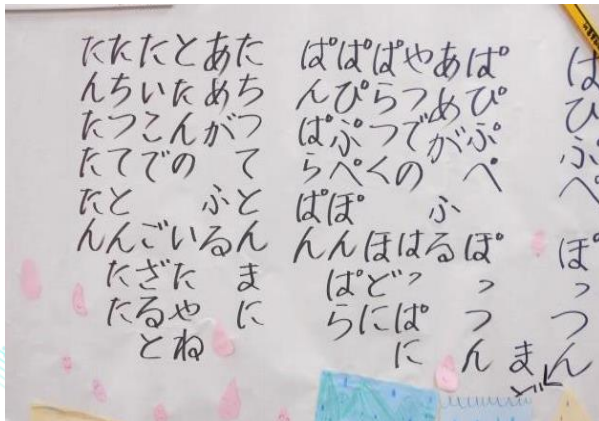 はひふへ ぽっつん
まど
ぱぴぷぺ ぽっつん
あめが ふる
やつでの はっぱに
ぱらつく ほどに
ぱぴぷぺ ぽん ぱら
ぱんぱら ぱん
たちつて とん まに
あめが ふる
とたんの いたやね
たいこで ござると
たちつて とん たた
たんたた たん